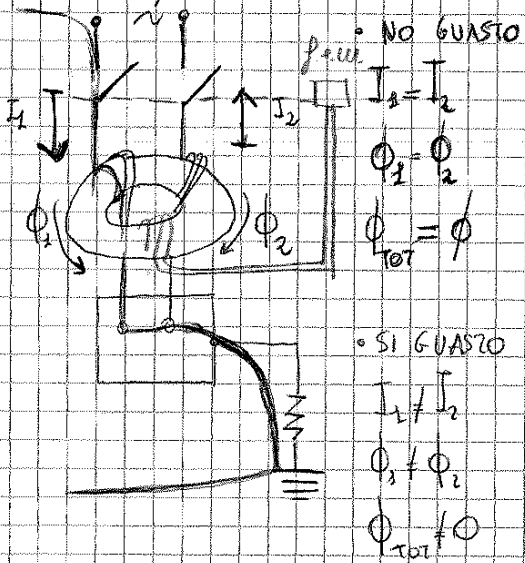 ~
f.e.m
I1
I2
ϕ1
ϕ2
• NO GUASTO
I1 = I2
ϕ1 = ϕ2
ϕTOT = ϕ
• SI GUASTO
I1 ≠ I2
ϕ1 ≠ ϕ2
ϕTOT ≠ 0